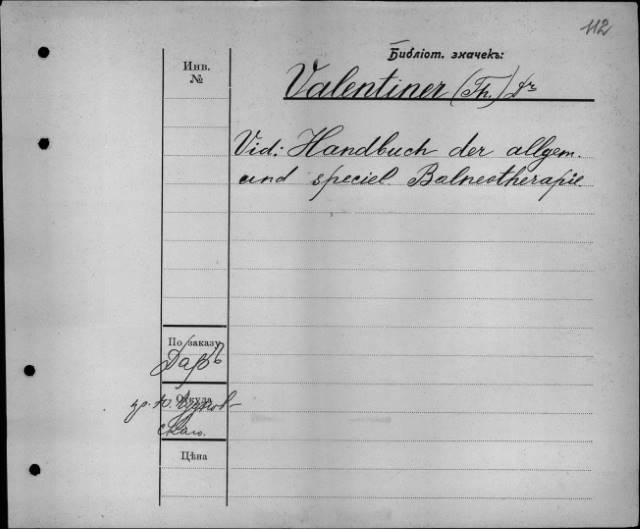 112
Библіот. значекъ:
Инв.
№
Valentiner (Th.) Dr
Vid: Handbuch der allgem.
und speciel Balneotherapie.
По заказу
Даръ
Откуда
Цѣна